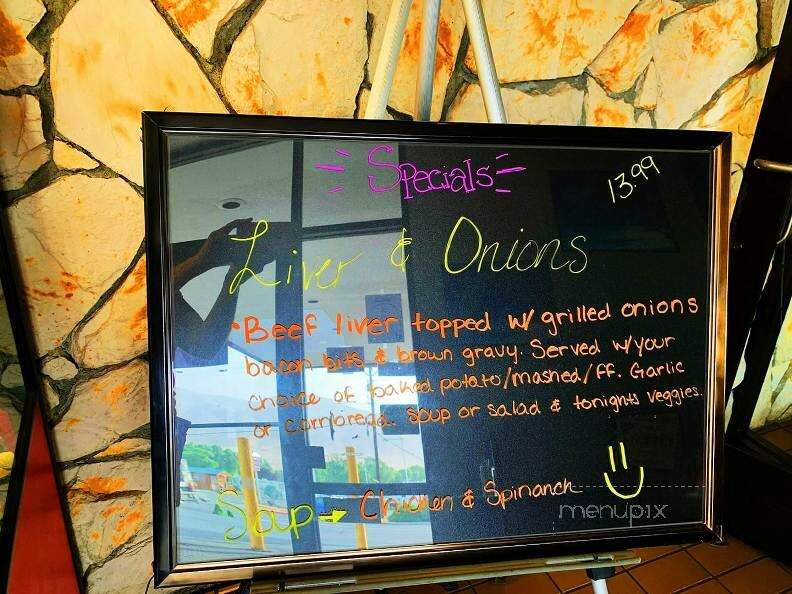 Specials
13.99
Liver & Onions
• Beef liver topped w/ grilled onions
bacon bits & brown gravy. Served w/your
choice of baked potato/mashed/ff. Garlic
or cornbread. Soup or salad & tonights veggies.
Soup → Chicken & Spinanch
menupix